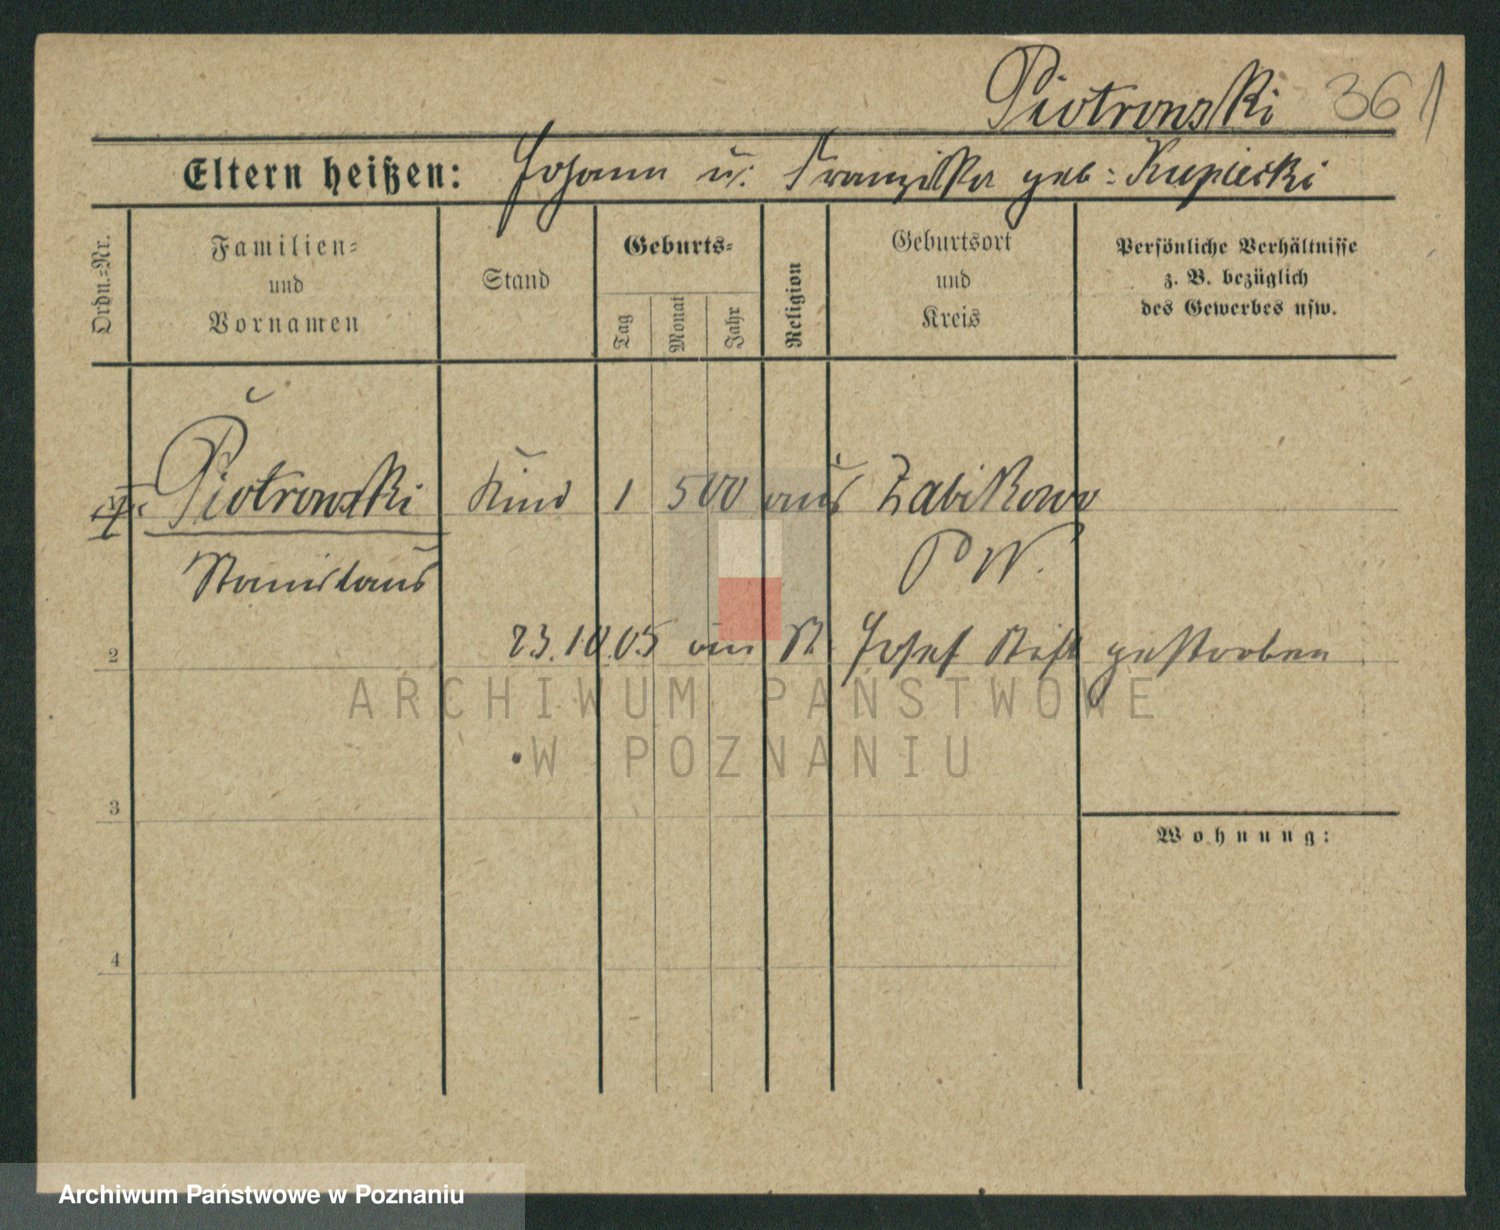 Piotrowski 361
Eltern heißen: Johann u. Franziska geb: Kupiecki
Ordn.=Nr.
Familien=
und
Vornamen
Stand
Geburts=
Tag
Monat
Jahr
Religion
Geburtsort
und
Kreis
Persönliche Verhältnisse
z. B. bezüglich
des Gewerbes usw.
Piotrowski Kind 1 5 00 aus Zabikowo
Stanislaus P W.
2 23.10.05 im St. Josef Stift gestorben
ARCHIWUM PAŃSTWOWE
W POZNANIU
3
Wohnung:
4
Archiwum Państwowe w Poznaniu